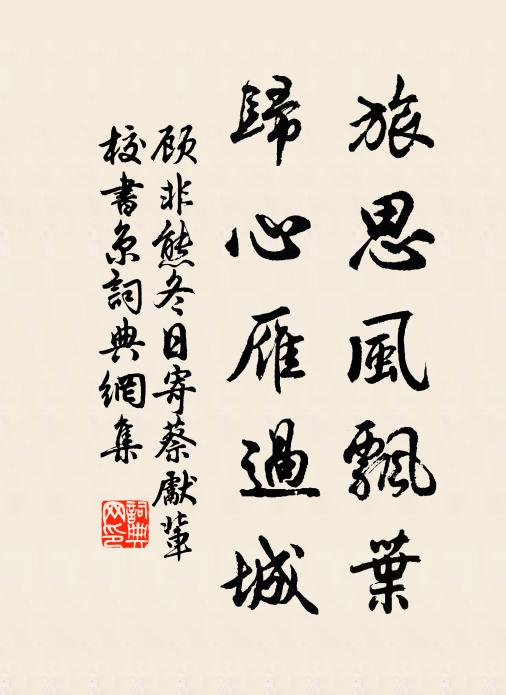 旅思風飄葉
歸心雁過城
顾非熊冬日寄蔡獻輩
校書京詞典網集
詞典网印